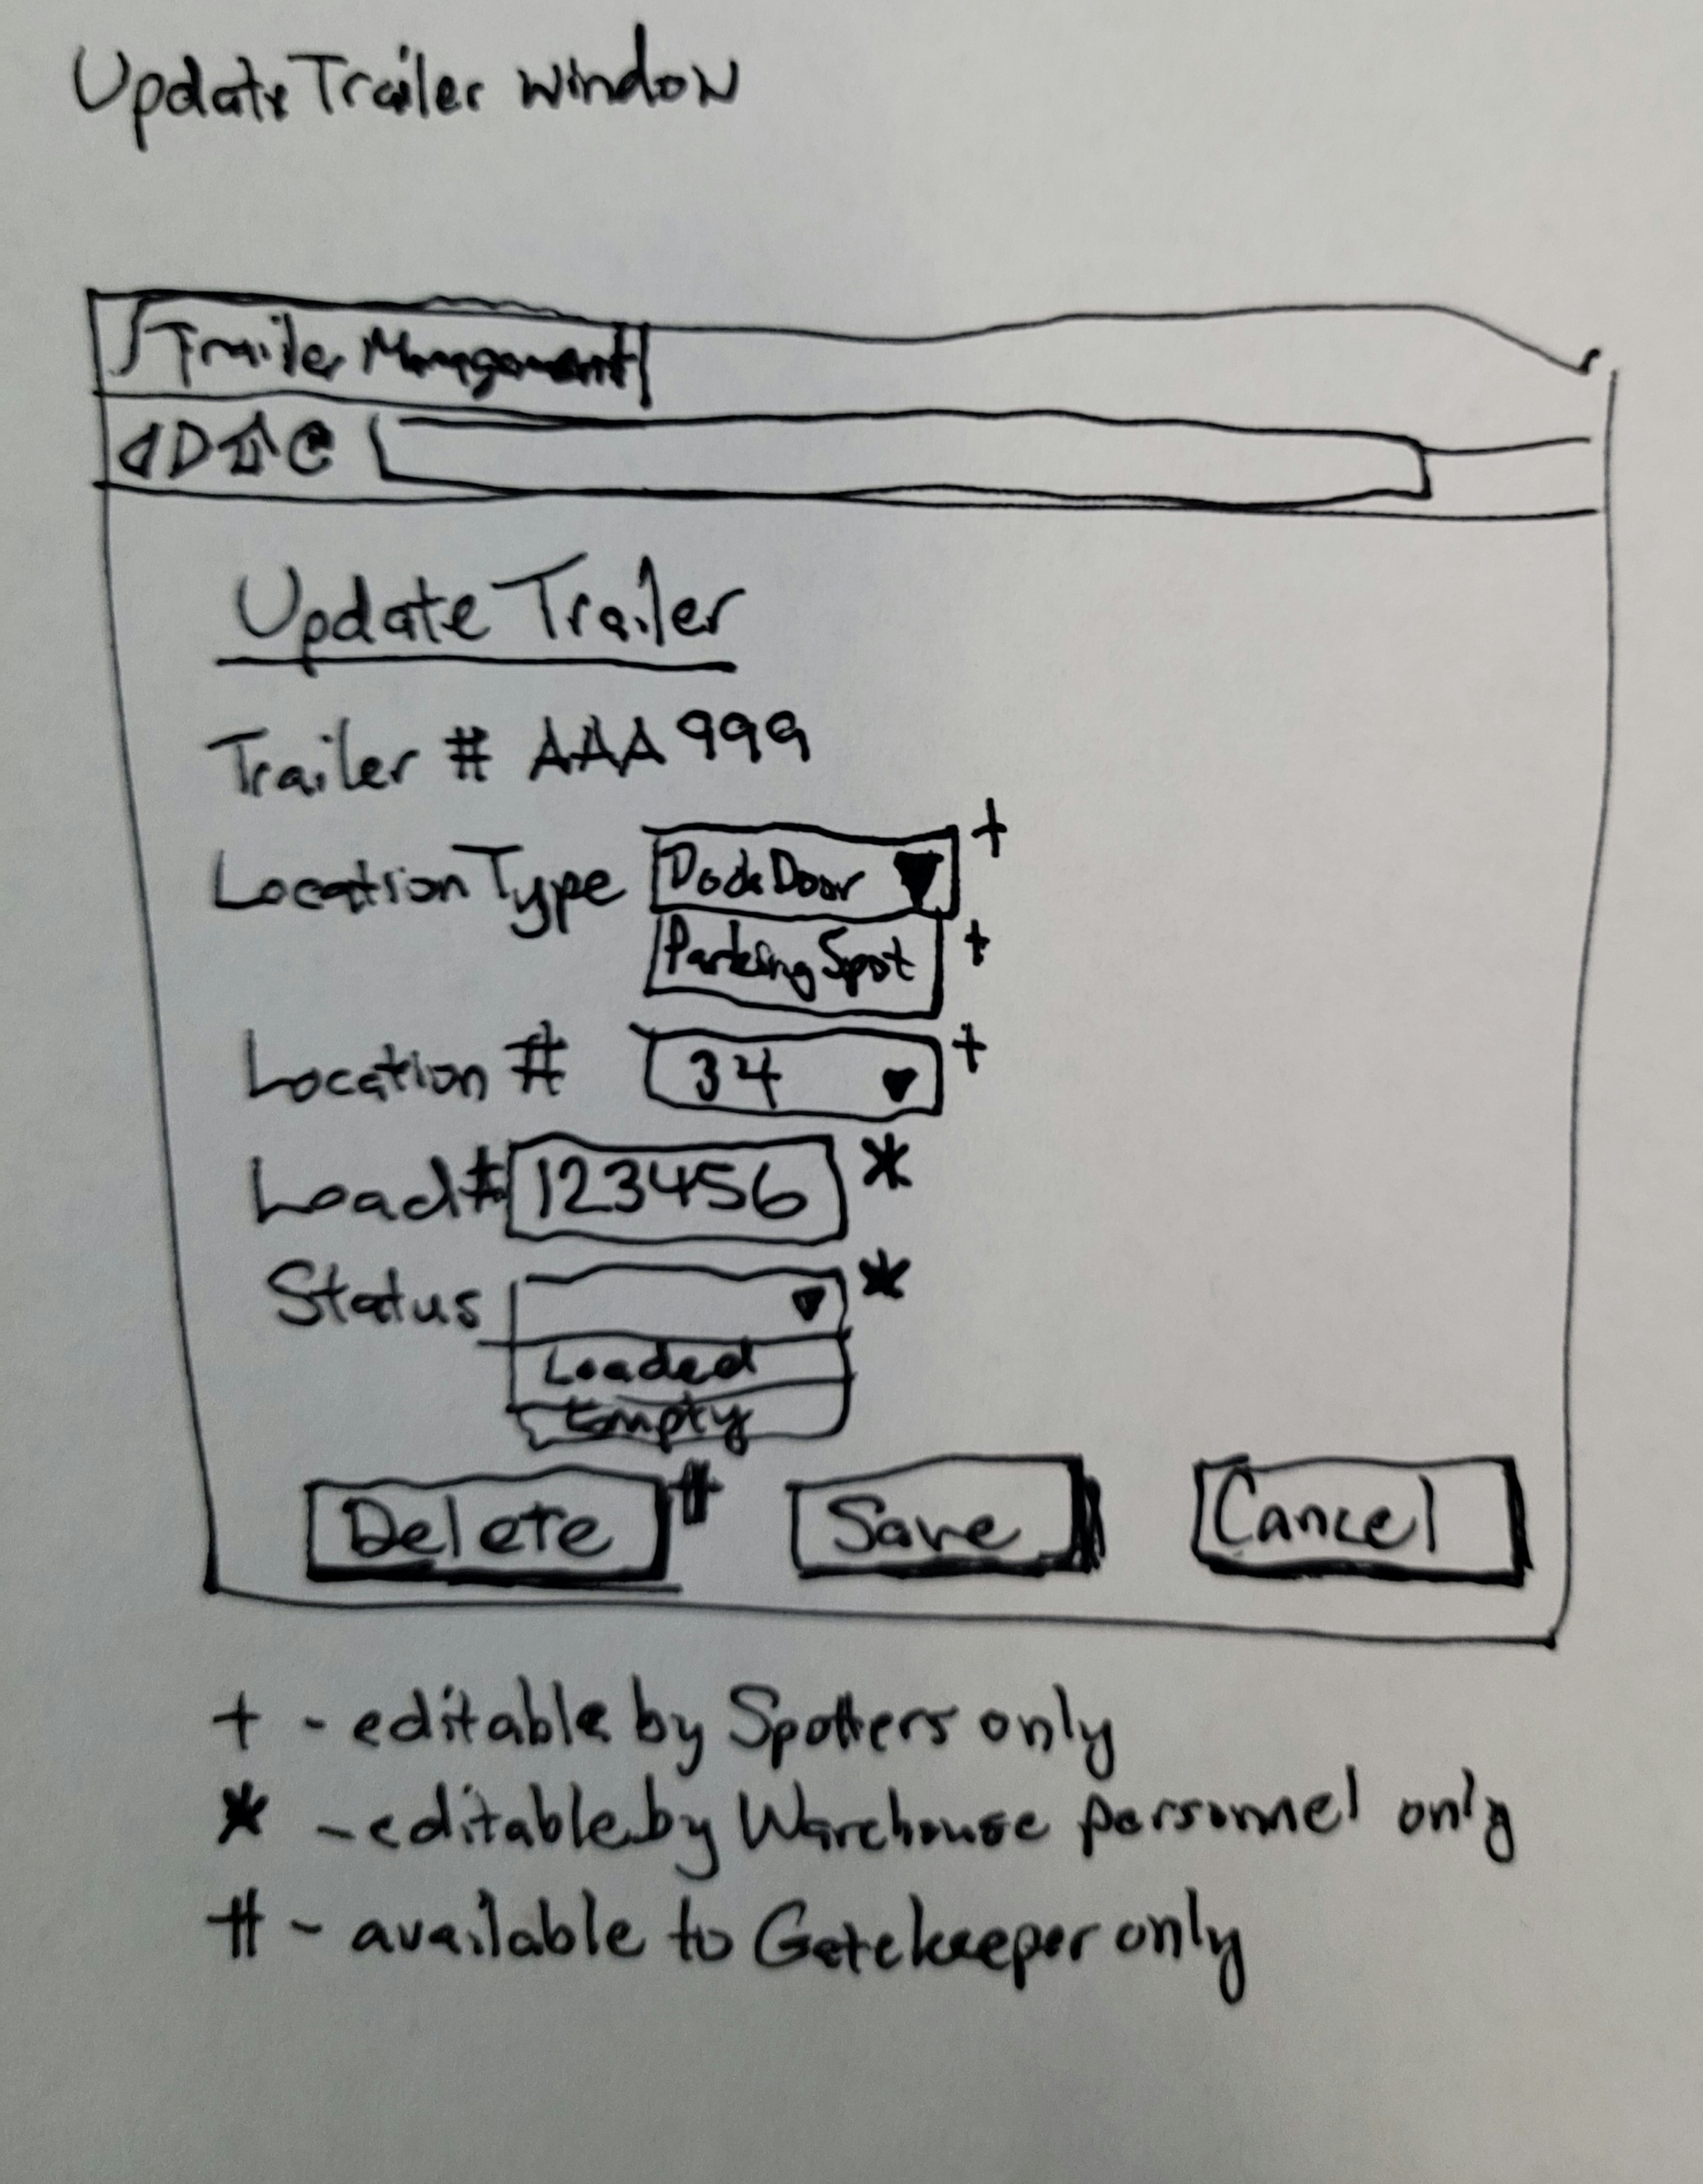 Update Trailer window
Trailer Management
Update Trailer
Trailer # AAA999
Location Type Dock Door +
Parking Spot +
Location # 34 +
Load# 123456 *
Status *
Loaded
Empty
Delete # Save Cancel
+ - editable by Spotters only
* - editable by Warehouse personnel only
# - available to Gatekeeper only